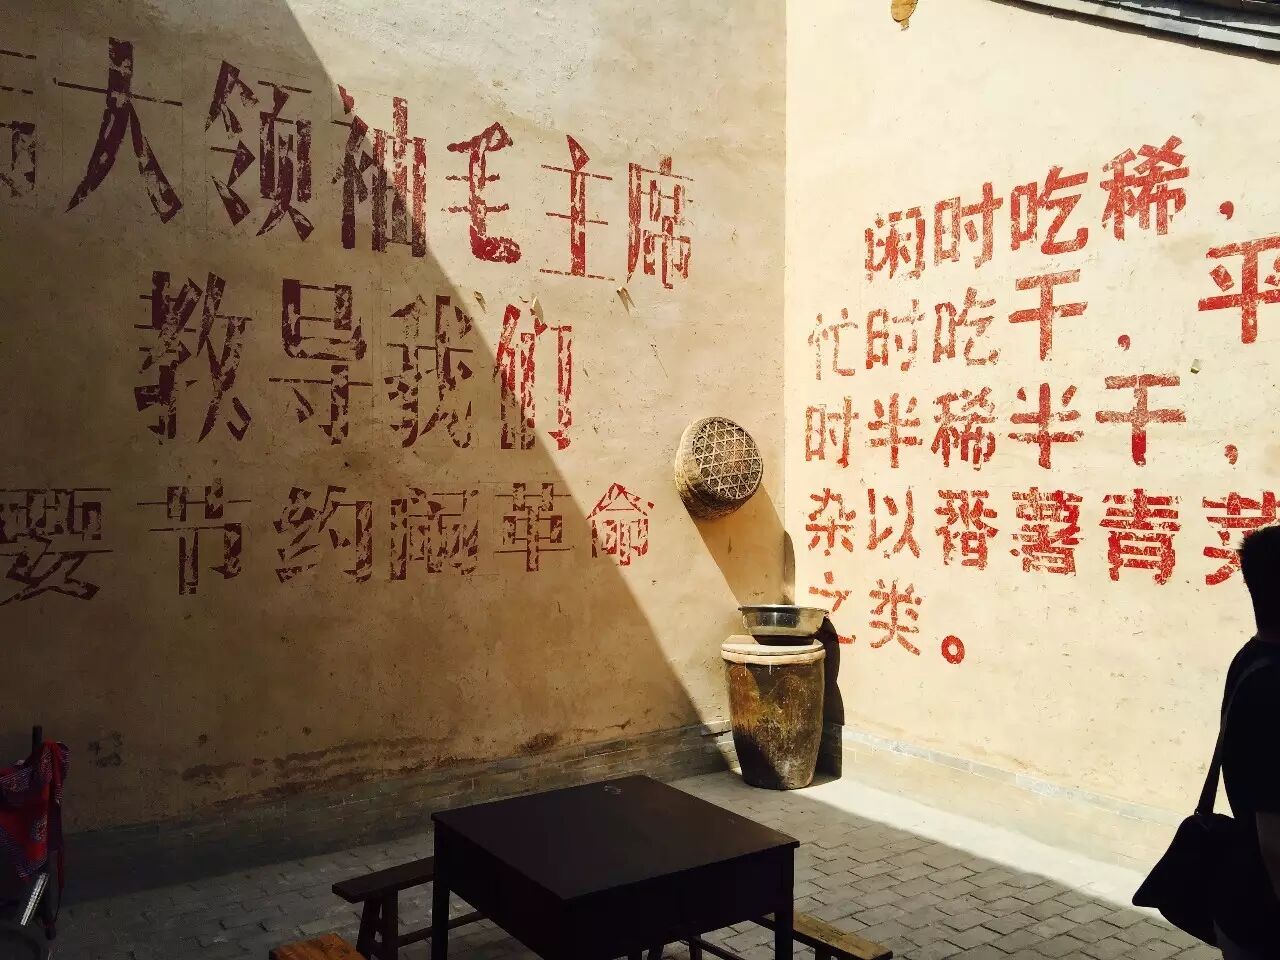 大领袖毛主席
教导我们
要节约闹革命
闲时吃稀，
忙时吃干，平
时半稀半干，
杂以番薯青菜
之类。